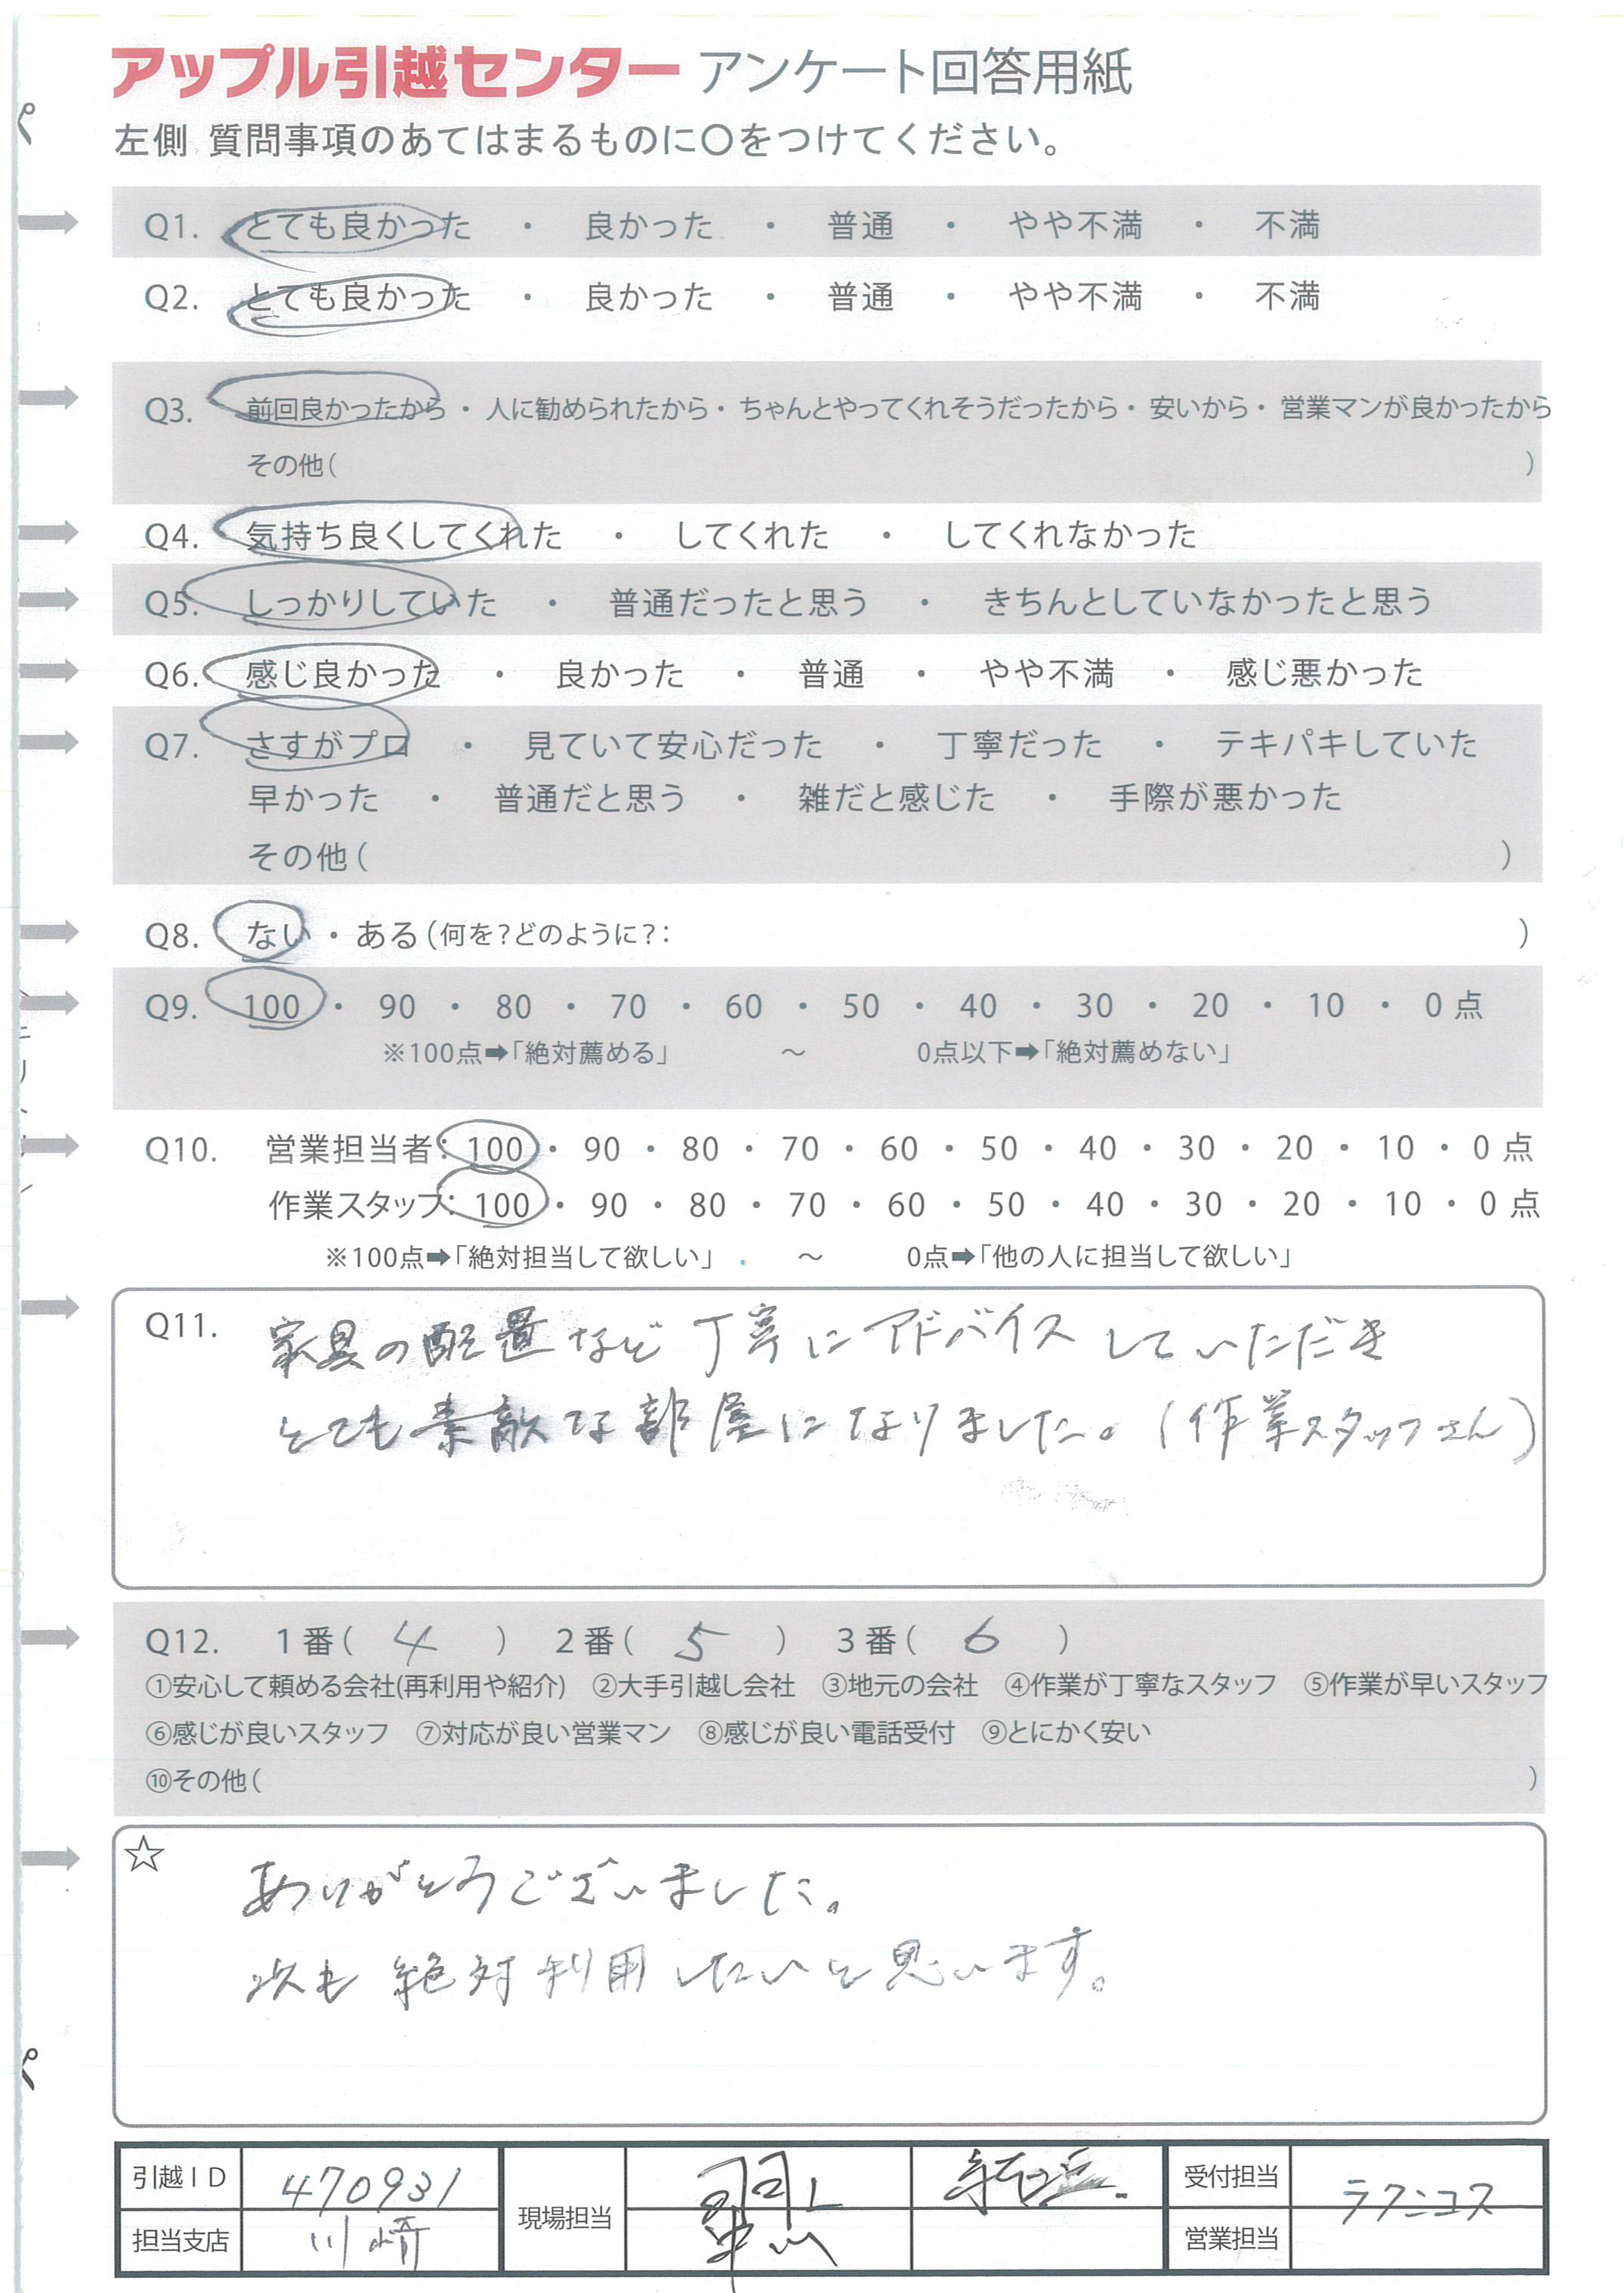 アップル引越センター アンケート回答用紙
左側 質問事項のあてはまるものに〇をつけてください。
Q1. とても良かった ・ 良かった ・ 普通 ・ やや不満 ・ 不満
Q2. とても良かった ・ 良かった ・ 普通 ・ やや不満 ・ 不満
Q3. 前回良かったから ・ 人に勧められたから ・ ちゃんとやってくれそうだったから ・ 安いから ・ 営業マンが良かったから
その他( )
Q4. 気持ち良くしてくれた ・ してくれた ・ してくれなかった
Q5. しっかりしていた ・ 普通だったと思う ・ きちんとしていなかったと思う
Q6. 感じ良かった ・ 良かった ・ 普通 ・ やや不満 ・ 感じ悪かった
Q7. さすがプロ ・ 見ていて安心だった ・ 丁寧だった ・ テキパキしていた
早かった ・ 普通だと思う ・ 雑だと感じた ・ 手際が悪かった
その他( )
Q8. ない ・ ある(何を?どのように?: )
Q9. 100 ・ 90 ・ 80 ・ 70 ・ 60 ・ 50 ・ 40 ・ 30 ・ 20 ・ 10 ・ 0 点
※100点➡「絶対薦める」 ～ 0点以下➡「絶対薦めない」
Q10. 営業担当者: 100 ・ 90 ・ 80 ・ 70 ・ 60 ・ 50 ・ 40 ・ 30 ・ 20 ・ 10 ・ 0 点
作業スタッフ: 100 ・ 90 ・ 80 ・ 70 ・ 60 ・ 50 ・ 40 ・ 30 ・ 20 ・ 10 ・ 0 点
※100点➡「絶対担当して欲しい」 ～ 0点➡「他の人に担当して欲しい」
Q11. 家具の配置など丁寧にアドバイスしていただき
とても素敵な部屋になりました。(作業スタッフさん)
Q12. 1番( 4 ) 2番( 5 ) 3番( 6 )
①安心して頼める会社(再利用や紹介) ②大手引越し会社 ③地元の会社 ④作業が丁寧なスタッフ ⑤作業が早いスタッフ
⑥感じが良いスタッフ ⑦対応が良い営業マン ⑧感じが良い電話受付 ⑨とにかく安い
⑩その他( )
☆ ありがとうございました。
次も絶対利用したいと思います。
引越ID 470931 現場担当 受付担当 ラクニコス
担当支店 川崎 営業担当